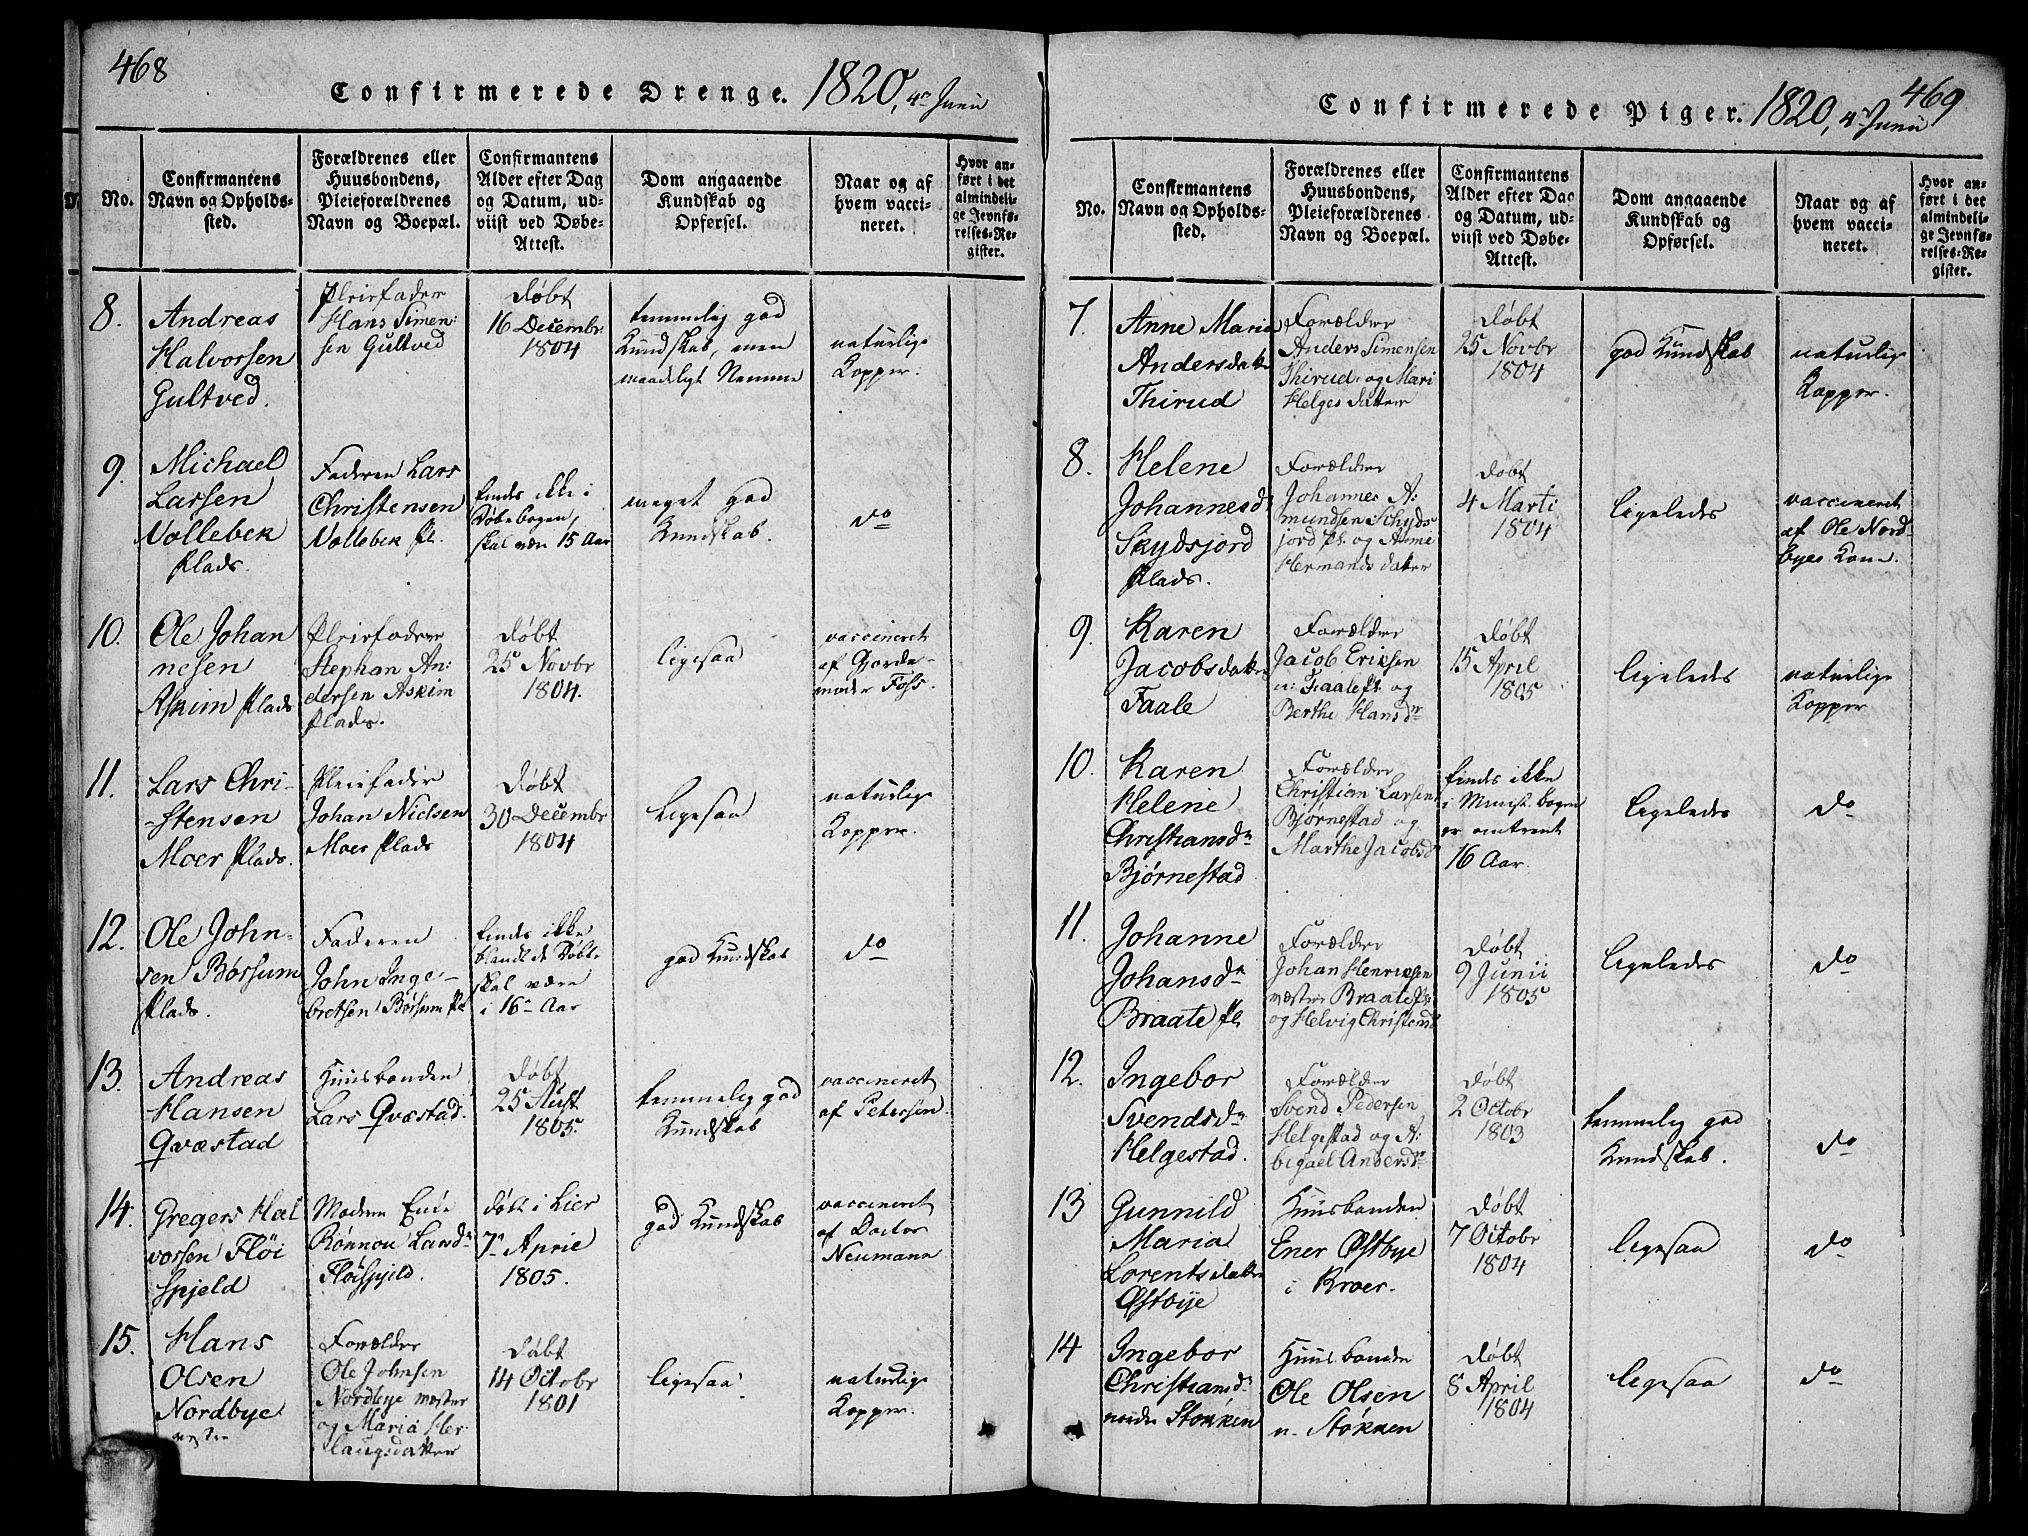 468
Confirmerede Drenge. 1820, 4de Junii
No.
Confirmantens
Navn og Opholds-
sted.
Forældrenes eller
Huusbondens,
Pleieforældrenes
Navn og Boepæl.
Confirmantens
Alder efter Dag
og Datum, ud-
viist ved Døbe-
Attest.
Dom angaaende
Kundskab og
Opførsel.
Naar og af
hvem vacci-
neret.
Hvor an-
ført i det
almindeli-
ge Jevnfø-
relses-Re-
gister.
8.
Andreas
Halvorsen
Gultved.
Pleiefader
Hans Simen:
sen Gultved
døbt
16 Decembr
1804
temmelig god
Kundskab, men
maadeligt Nemme
naturlige
Kopper.
9.
Michael
Larsen
Vollebek
Plads.
Faderen Lars
Christensen
Vollebek Pl.
findes ikke i
Døbebogen,
skal være 15 Aar
meget god
Kundskab.
do
10.
Ole Johan
nesen
Askim Plads
Pleiefader
Stephan An:
dersen Askim
Plads.
døbt
25 Novbr
1804.
ligesaa
vaccineret
af Gjorde-
moder Foss.
11.
Lars Chri-
-stensen
Moer Plads.
Pleiefader
Johan Nielsen
Moer Plads
døbt
30 Decembr
1804
ligesaa
naturlige
Kopper.
12.
Ole John-
sen Børsum
Plads.
Faderen
John Inge-
bretsen Børsum Pl
findes ikke
blandt de Døbt-
skal være
i 16de Aar
god Kundskab
do
13.
Andreas
Hansen
Qvæstad
Huusbonden
Lars Qvæstad.
døbt
25 Aust
1805.
temmelig god
Kundskab
vaccineret
af Petersen.
14.
Gregers Hal
vorsen Fløi
spjeld
Moderen Enke
Rønnou Larsdr
Fløispjeld.
døbt i Lier
7de April
1805.
god Kundskab
vaccineret
af Doctor
Neumann
15.
Hans
Olsen
Nordbye
vestre
Forældre
Ole Johnsen
Nordbye vestre
og Maria Her
laugsdatter
døbt
14 Octobr
1801
ligesaa
naturlige
Kopper.
469
Confirmerede Piger. 1820, 4de Junii
No.
Confirmantens
Navn og Opholds-
sted.
Forældrenes eller
Huusbondens,
Pleieforældrenes
Navn og Boepæl.
Confirmantens
Alder efter Dag
og Datum, ud-
viist ved Døbe-
Attest.
Dom angaaende
Kundskab og
Opførsel.
Naar og af
hvem vacci-
neret.
Hvor an-
ført i det
almindeli-
ge Jevnfø-
relses-Re-
gister.
7.
Anne Maria
Andersdatr
Thirud
Forældre
Anders Simensen
Thirud og Mari
Helges datter
døbt
25 Novbr
1804
god Kundskab
naturlige
Kopper.
8.
Helene
Johannesdr
Skydsjord
Plads.
Forældre
Johannes A:
mundsen Schyds
jord Pl. og Anne
Hermands datter
døbt
4 Marti
1804
ligeledes
vaccineret
af Ole Nord-
byes Kone.
9.
Karen
Jacobsdatr
Faale
Forældre
Jacob Eriksen
n: Faale Pl. og
Berthe Hansdr
døbt
15 April
1805
ligeledes
naturlige
Kopper
10.
Karen
Helene
Christiansdr
Bjørnestad
Forældre
Christian Larsen
Bjørnestad og
Marthe Jacobsd
findes ikke
i Minist. bogen
er omtrent
16 Aar.
ligeledes
do
11.
Johanne
Johansdr
Braate Pl
Forældre
Johan Henriksen
vestre Braate Pl:
og Helvig Christensd
døbt
9 Junii
1805
ligeledes
do
12.
Ingebor
Svendsdr
Helgestad.
Forældre
Svend Pedersen
Helgestad og A:
bigael Andersdr
døbt
2 Octobr
1803
temmelig god
Kundskab.
do
13
Gunnild
Maria
Lorentsdatr
Østbye
Huusbonden
Ener Østbye
i Kroer.
døbt
7 Octobr
1804
ligesaa
do
14
Ingebor
Christiansdr
nedre Stokken
Huusbonde
Ole Olsen
n. Støkken
døbt
8 April
1804
ligesaa
do